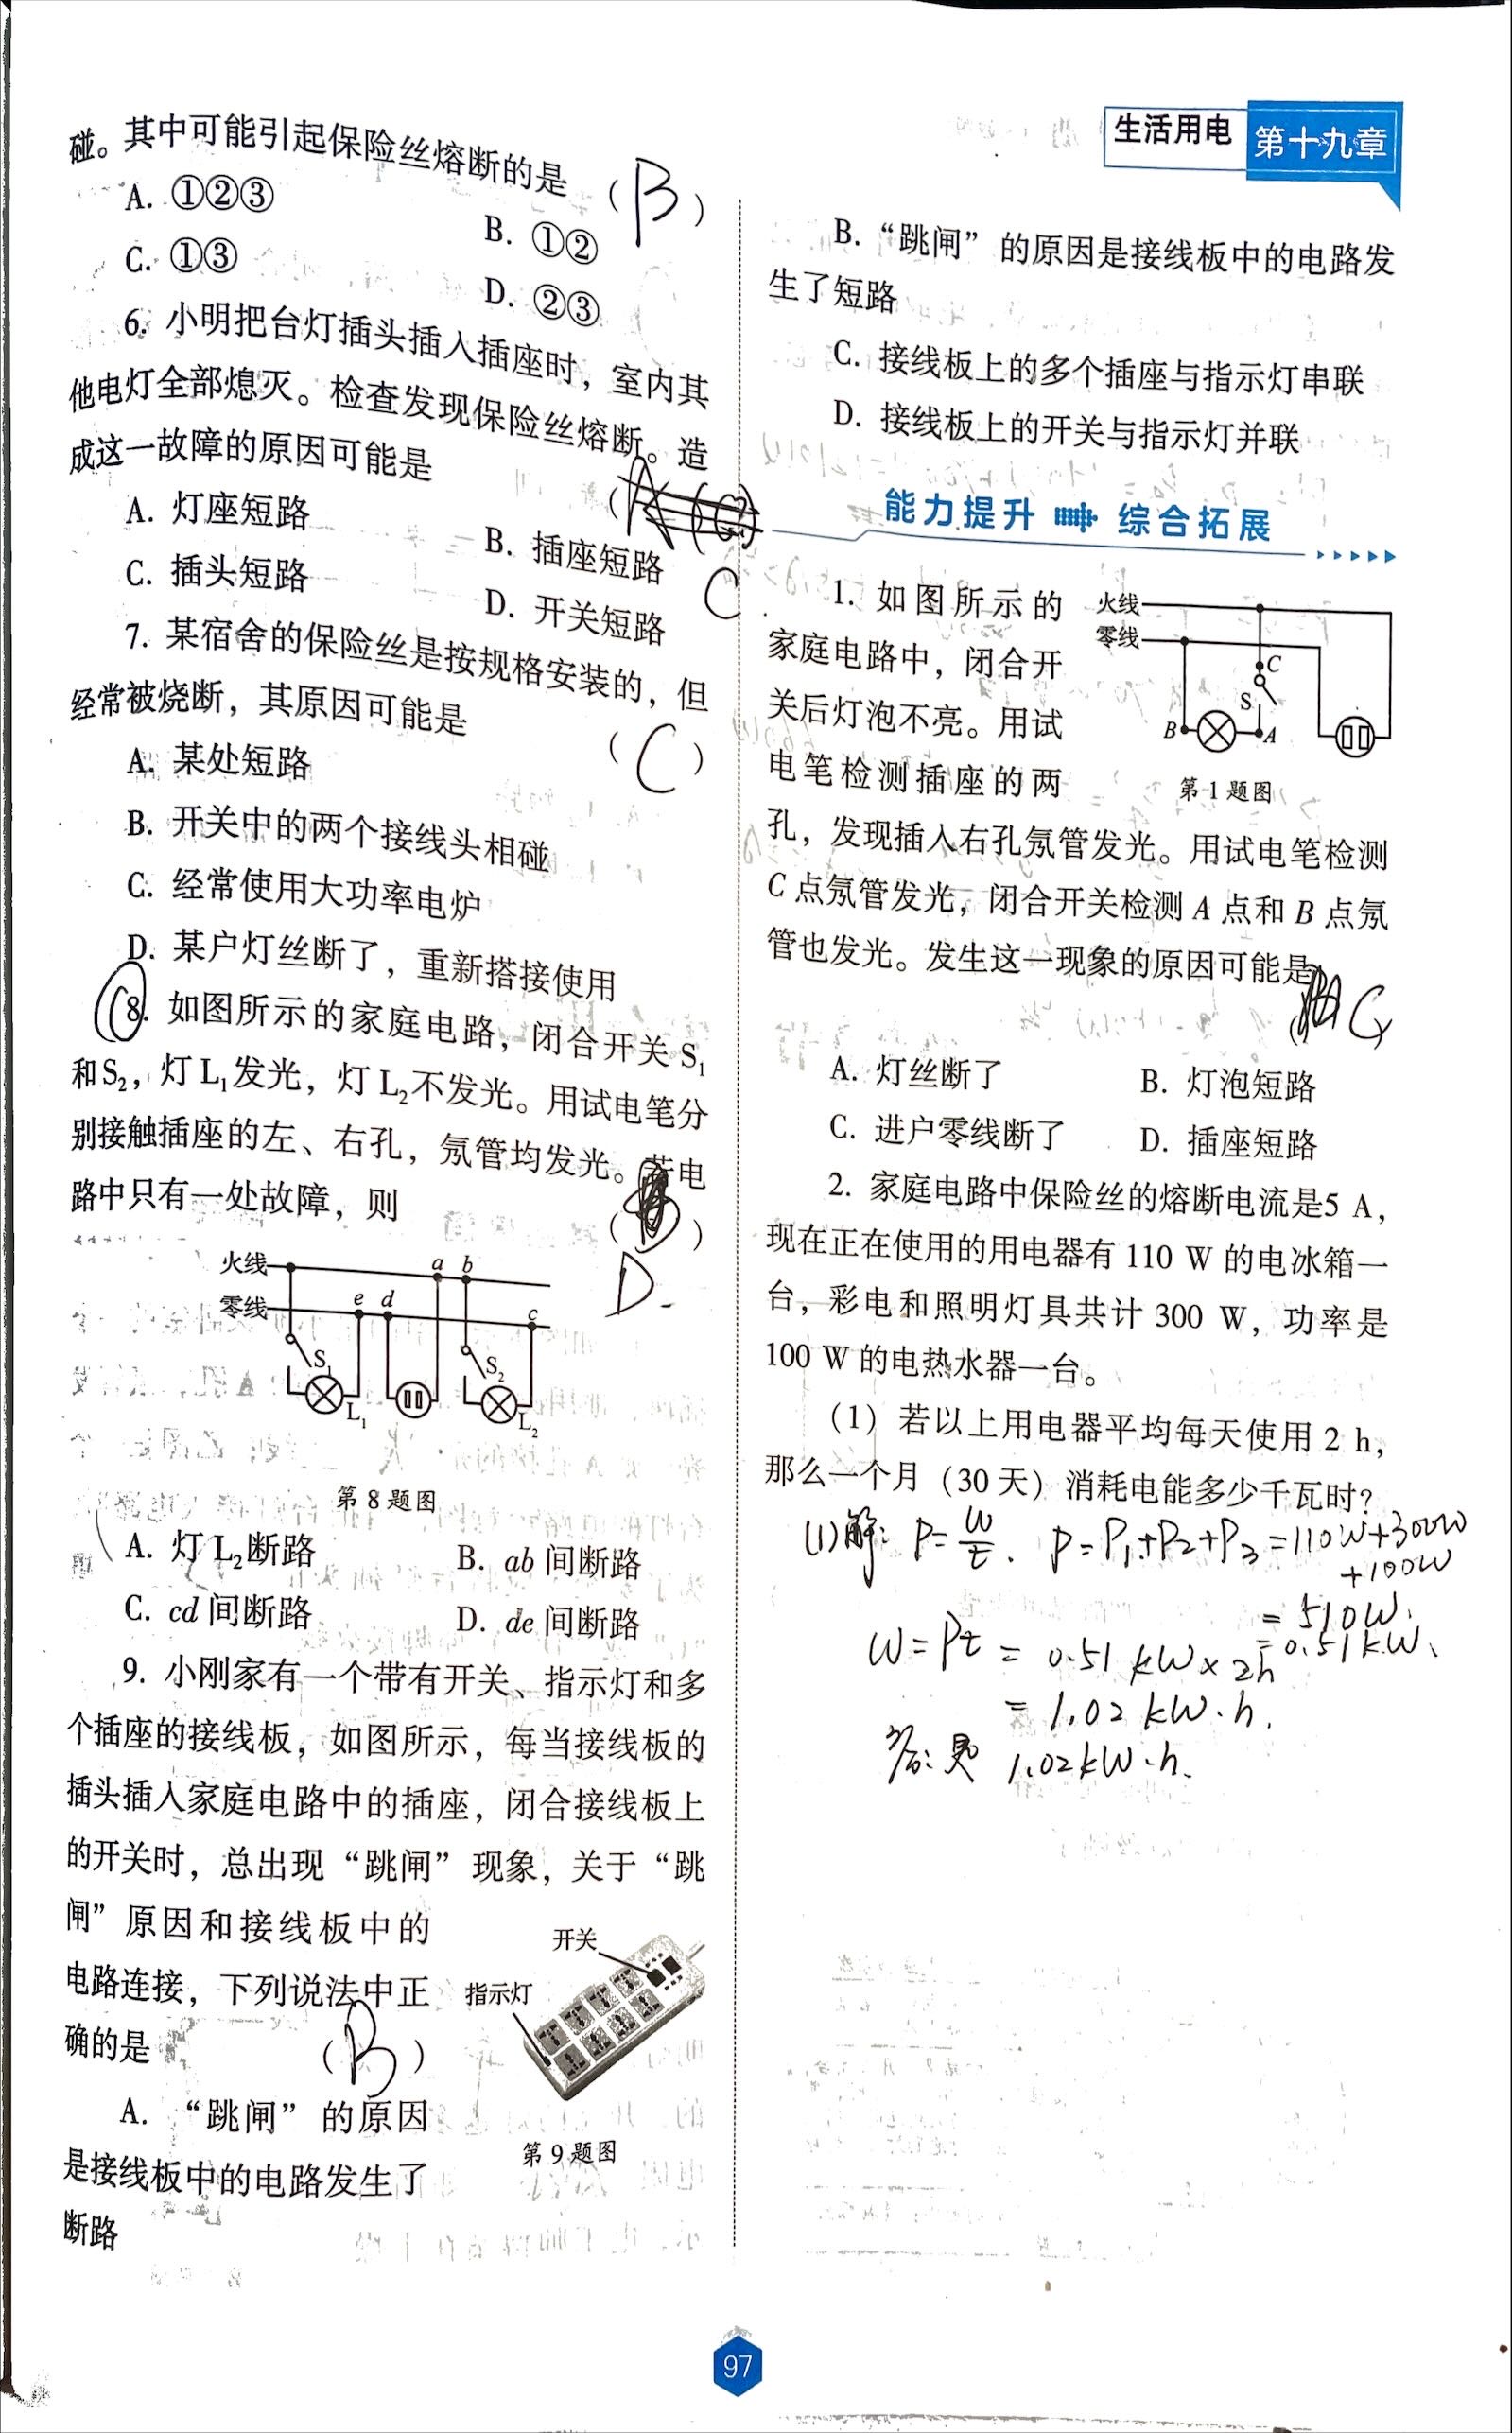 生活用电 第十九章
碰。其中可能引起保险丝熔断的是 (B)
A. ①②③
B. ①②
C. ①③
D. ②③
6. 小明把台灯插头插入插座时，室内其
他电灯全部熄灭。检查发现保险丝熔断。造
成这一故障的原因可能是 (
A. 灯座短路
B. 插座短路
C. 插头短路
C
D. 开关短路
7. 某宿舍的保险丝是按规格安装的，但
经常被烧断，其原因可能是 (C)
A. 某处短路
B. 开关中的两个接线头相碰
C. 经常使用大功率电炉
D. 某户灯丝断了，重新搭接使用
8. 如图所示的家庭电路，闭合开关 S₁
和S₂，灯L₁发光，灯L₂不发光。用试电笔分
别接触插座的左、右孔，氖管均发光。若电
路中只有一处故障，则 ( )
D
火线 a b
零线 e d c
S₁ S₂
L₁ L₂
第 8 题图
A. 灯 L₂断路 B. ab 间断路
C. cd 间断路 D. de 间断路
9. 小刚家有一个带有开关、指示灯和多
个插座的接线板，如图所示，每当接线板的
插头插入家庭电路中的插座，闭合接线板上
的开关时，总出现“跳闸”现象，关于“跳
闸”原因和接线板中的
电路连接，下列说法中正
确的是 (B)
开关
指示灯
第 9 题图
A. “跳闸”的原因
是接线板中的电路发生了
断路
B. “跳闸”的原因是接线板中的电路发
生了短路
C. 接线板上的多个插座与指示灯串联
D. 接线板上的开关与指示灯并联
能力提升 综合拓展
1. 如图所示的
家庭电路中，闭合开
关后灯泡不亮。用试
电笔检测插座的两
火线
零线
C
S
B A
第 1 题图
孔，发现插入右孔氖管发光。用试电笔检测
C 点氖管发光，闭合开关检测 A 点和 B 点氖
管也发光。发生这一现象的原因可能是
C
A. 灯丝断了 B. 灯泡短路
C. 进户零线断了 D. 插座短路
2. 家庭电路中保险丝的熔断电流是5 A，
现在正在使用的用电器有 110 W 的电冰箱一
台，彩电和照明灯具共计 300 W，功率是
100 W 的电热水器一台。
（1）若以上用电器平均每天使用 2 h，
那么一个月（30 天）消耗电能多少千瓦时？
(1)解: P=W/t. P=P₁+P₂+P₃=110W+300W
+100W
=510W.
=0.51kW.
W=Pt=0.51kW×2h
=1.02kW·h.
答: 是 1.02kW·h.
97